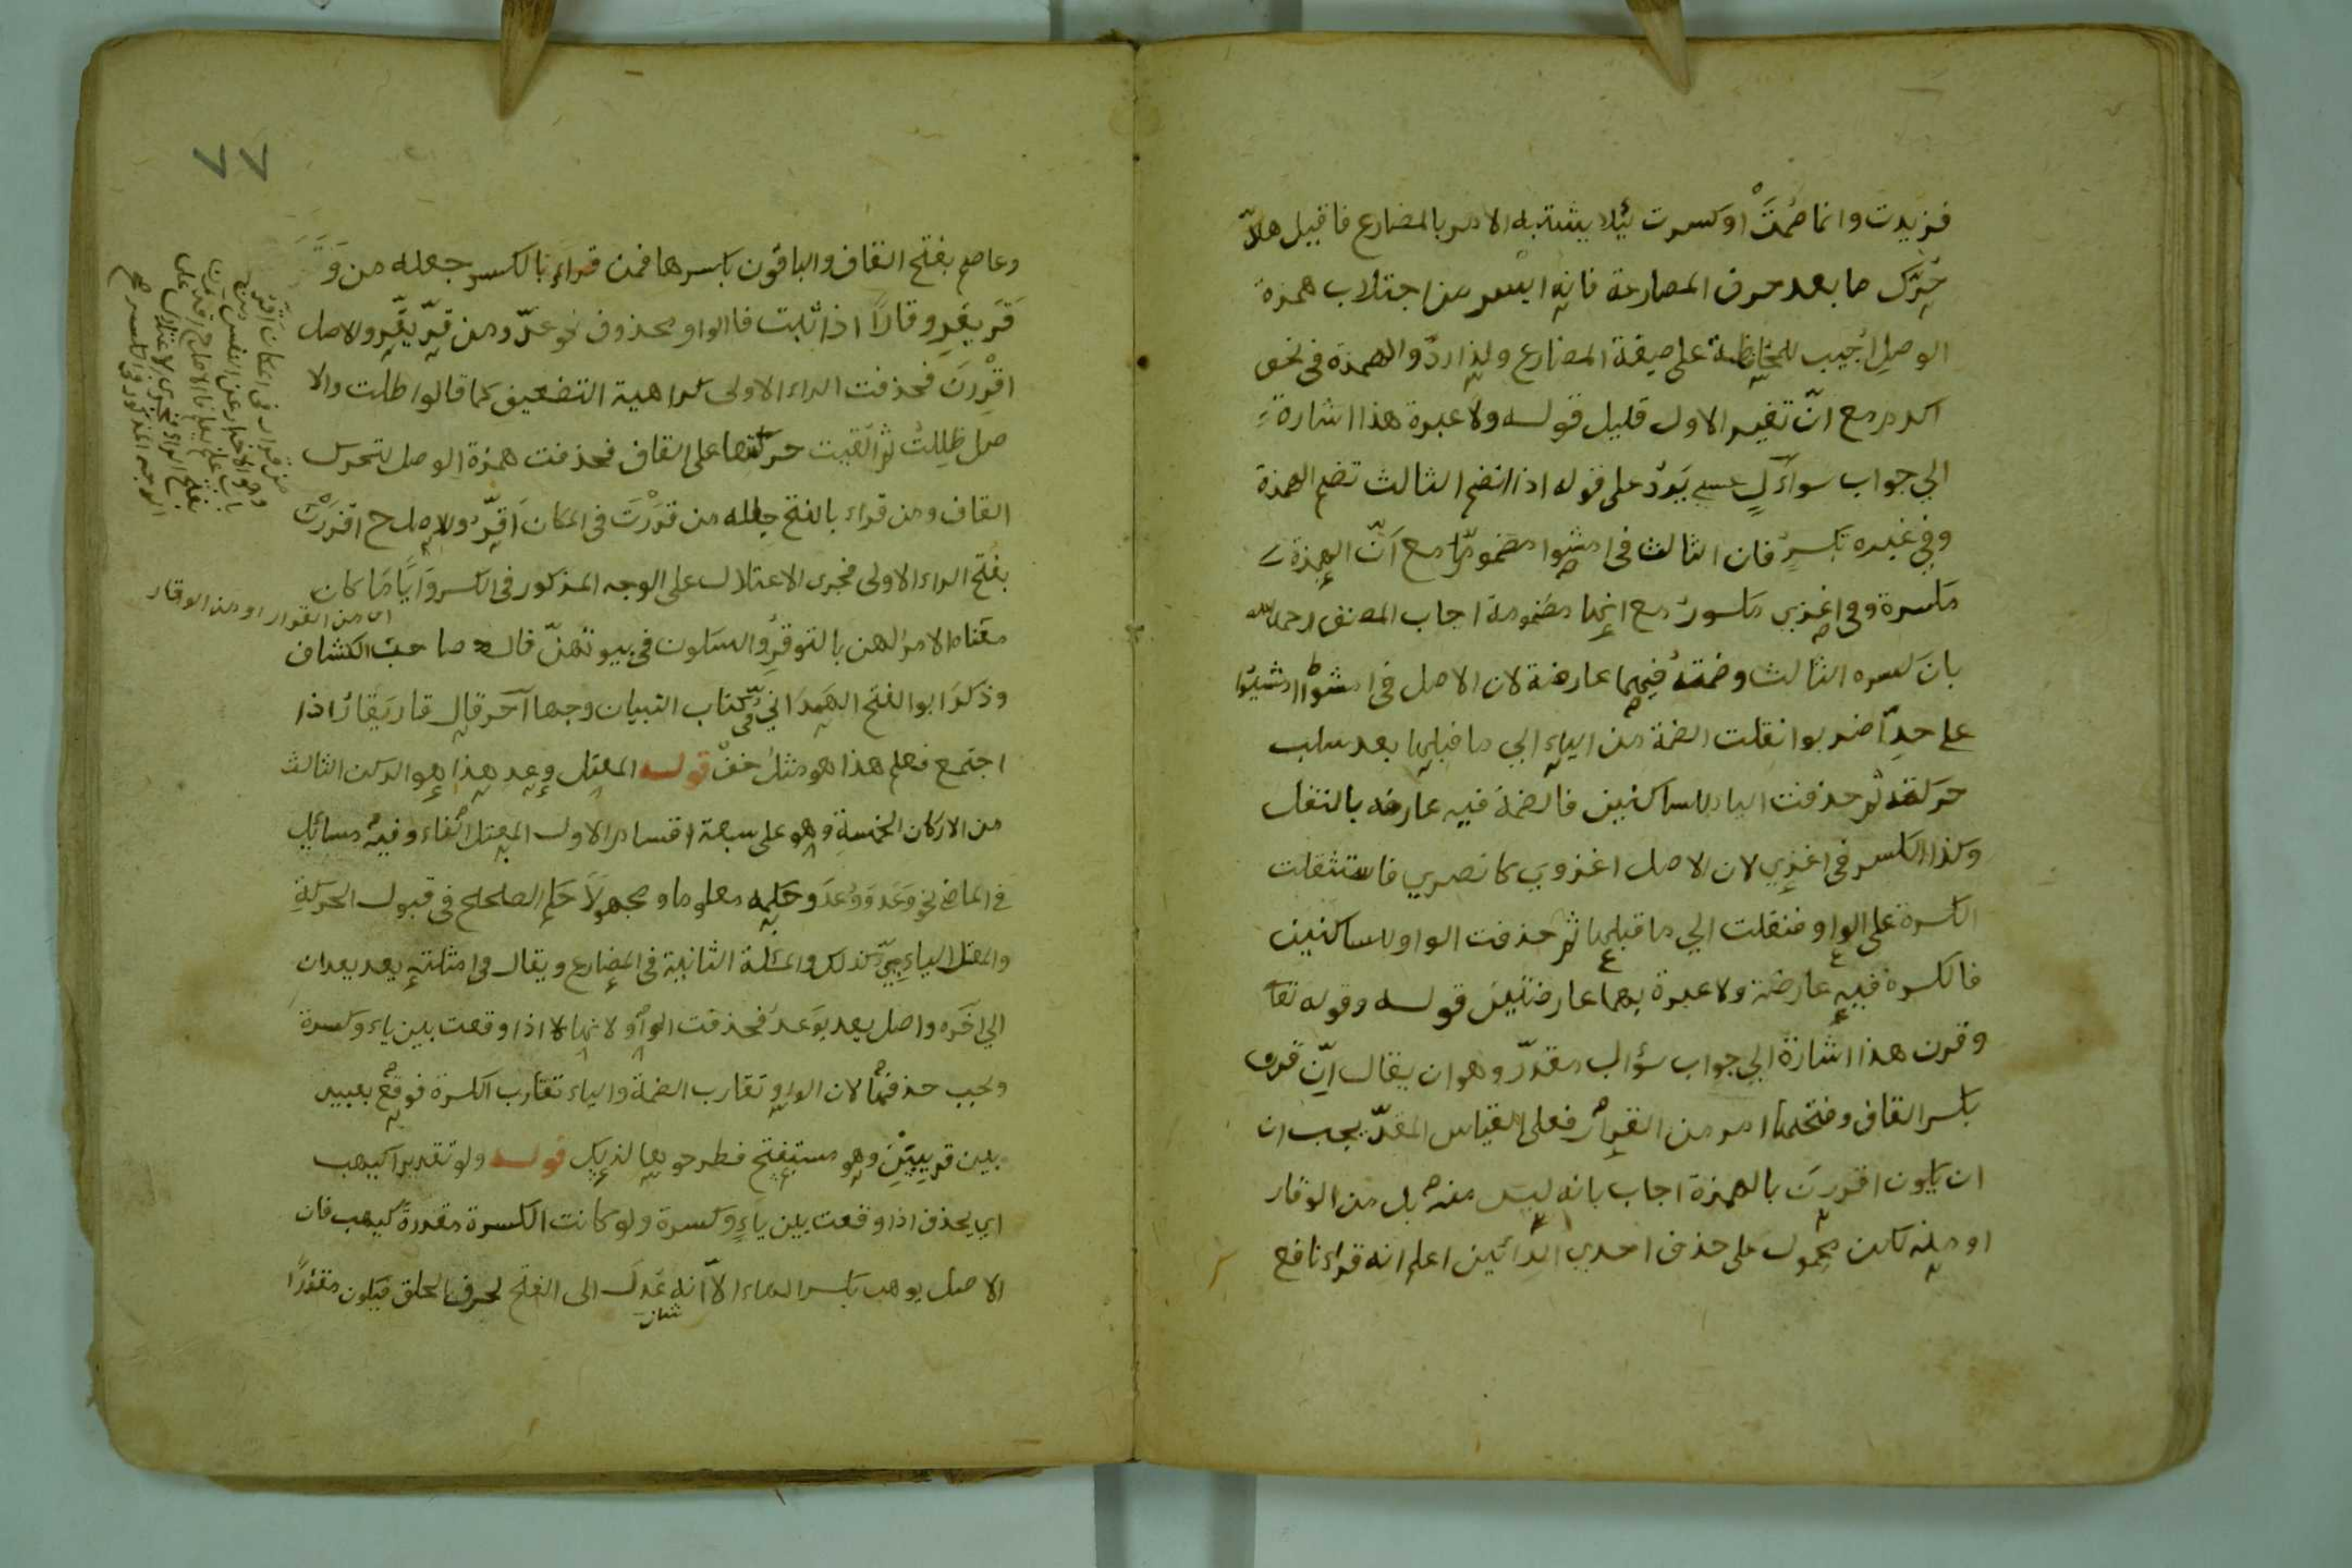 فزيدت وانما ضُمّتْ او كسرت لئلا يشتبه الامر بالمضارع فاقيل هلّا
حُرّك ما بعد حرف المضارعة فانه ايسر من اجتلاب همزة
الوصل اُجيب للمحافظة على صيغة المضارع ولذا ردّوا الهمزة في نحو
اكرم مع انّ تغير الاول قليل قوله ولا عبرة هذا اشارة
الي جواب سوآءلٍ عسي يَردُ على قوله اذا انضم الثالث تضم الهمزة
وفي غيره تكسرُ فان الثالث في امشوا مضمومٌ مع اَنّ الهمزة
مكسرة وفي اغزي مكسورٌ مع انها مضمومة اجاب المصنف رحمه الله
بان كسره الثالث وضمته فيهما عارضة لان الاصل في امشوا امشيُوا
على حدّ اضربوا نقلت الضمة من الياء الي ما قبلها بعد سلب
حركته ثم حذفت الياء للساكنين فالضمة فيه عارضه بالنقل
وكذا الكسر في اغزي لان الاصل اغزوي كانصري فاستثقلت
الكسرة على الواو فنقلت الي ما قبلها ثم حذفت الواو للساكنين
فالكسرة فيه عارضة ولا عبرة بهما عارضتين قوله وقوله تعا
وقرن هذا اشارة الي جواب سؤال مقدّر وهو ان يقال اِنّ قرن
بكسر القاف وفتحها امر من القرار فعلى القياس المقدّ يجب ان
ان يكون اقررن بالهمزة اجاب بانه ليس منه بل من الوقار
او منه لكن محمول على حذف احدي الرائين اعلم انه قراء نافع
٧٧
وعاصم بفتح القاف والباقون بكسرها فمن قراء بالكسر جعله من وَقَرَ
قَرَ يقر وقارًا اذا ثبت فاالواو محذوف نحو عدّ ومن قرّ يقّر والاصل
اقْرِرنَ فحذفت الراء الاولى كراهية التضعيف كما قالوا ظلت والا
صل ظلِلتُ ثم القيت حركتها على القاف فحذفت همزة الوصل لتحرك
القاف ومن قراء بالفتح جعله من قررْتَ في المكان اَقرّ والاصل ح اقررْنَ
بفتح الراء الاولى فجرى الاعتلال على الوجه المذكور في الكسر وَايّاً مَا كان
اي من القرار او من الوقار
معناه الامر لهن بالتوقر والسكون في بيوتهنّ قال صاحب الكشاف
وذكر ابو الفتح الهمداني في كتاب التبيان وجها آخر قال قار يقارُ اذا
اجتمع فعلم هذا هو مثل خفْ قوله المعتل وعد هذا هو الركن الثالث
من الاركان الخمسة وهو على سبعة اقسام الاول المعتل الفاء وفيه مسائل
في الماضي نحو وَعَدَ وَوُعدَ وحكمه معلوما ومجهولاً حكم الصلحلح في قبول الحركة
والمعتل الياءيّ كذلك والمسئلة الثانية في المضارع ويقال في امثلته يعد يعدان
الي اخره واصل يعد يوعد فحذفت الواو لانها لا اذا وقعت بين ياء وكسرة
وجب حذفها لان الواو تقارب الضمة والياء تقارب الكسرة فوقع بعيد
بين قريبيْن وهو مستقبح فطرحوها لذلك قوله ولو تقديرا كيهب
اي يحذف اذا وقعت بين ياءٍ وكسرة ولو كانت الكسرة مقدرة كيهب فان
الاصل يوهب بكسر الهاء الّا انه عدل الى الفتح لحرف الحلق فيكون مقدرًا